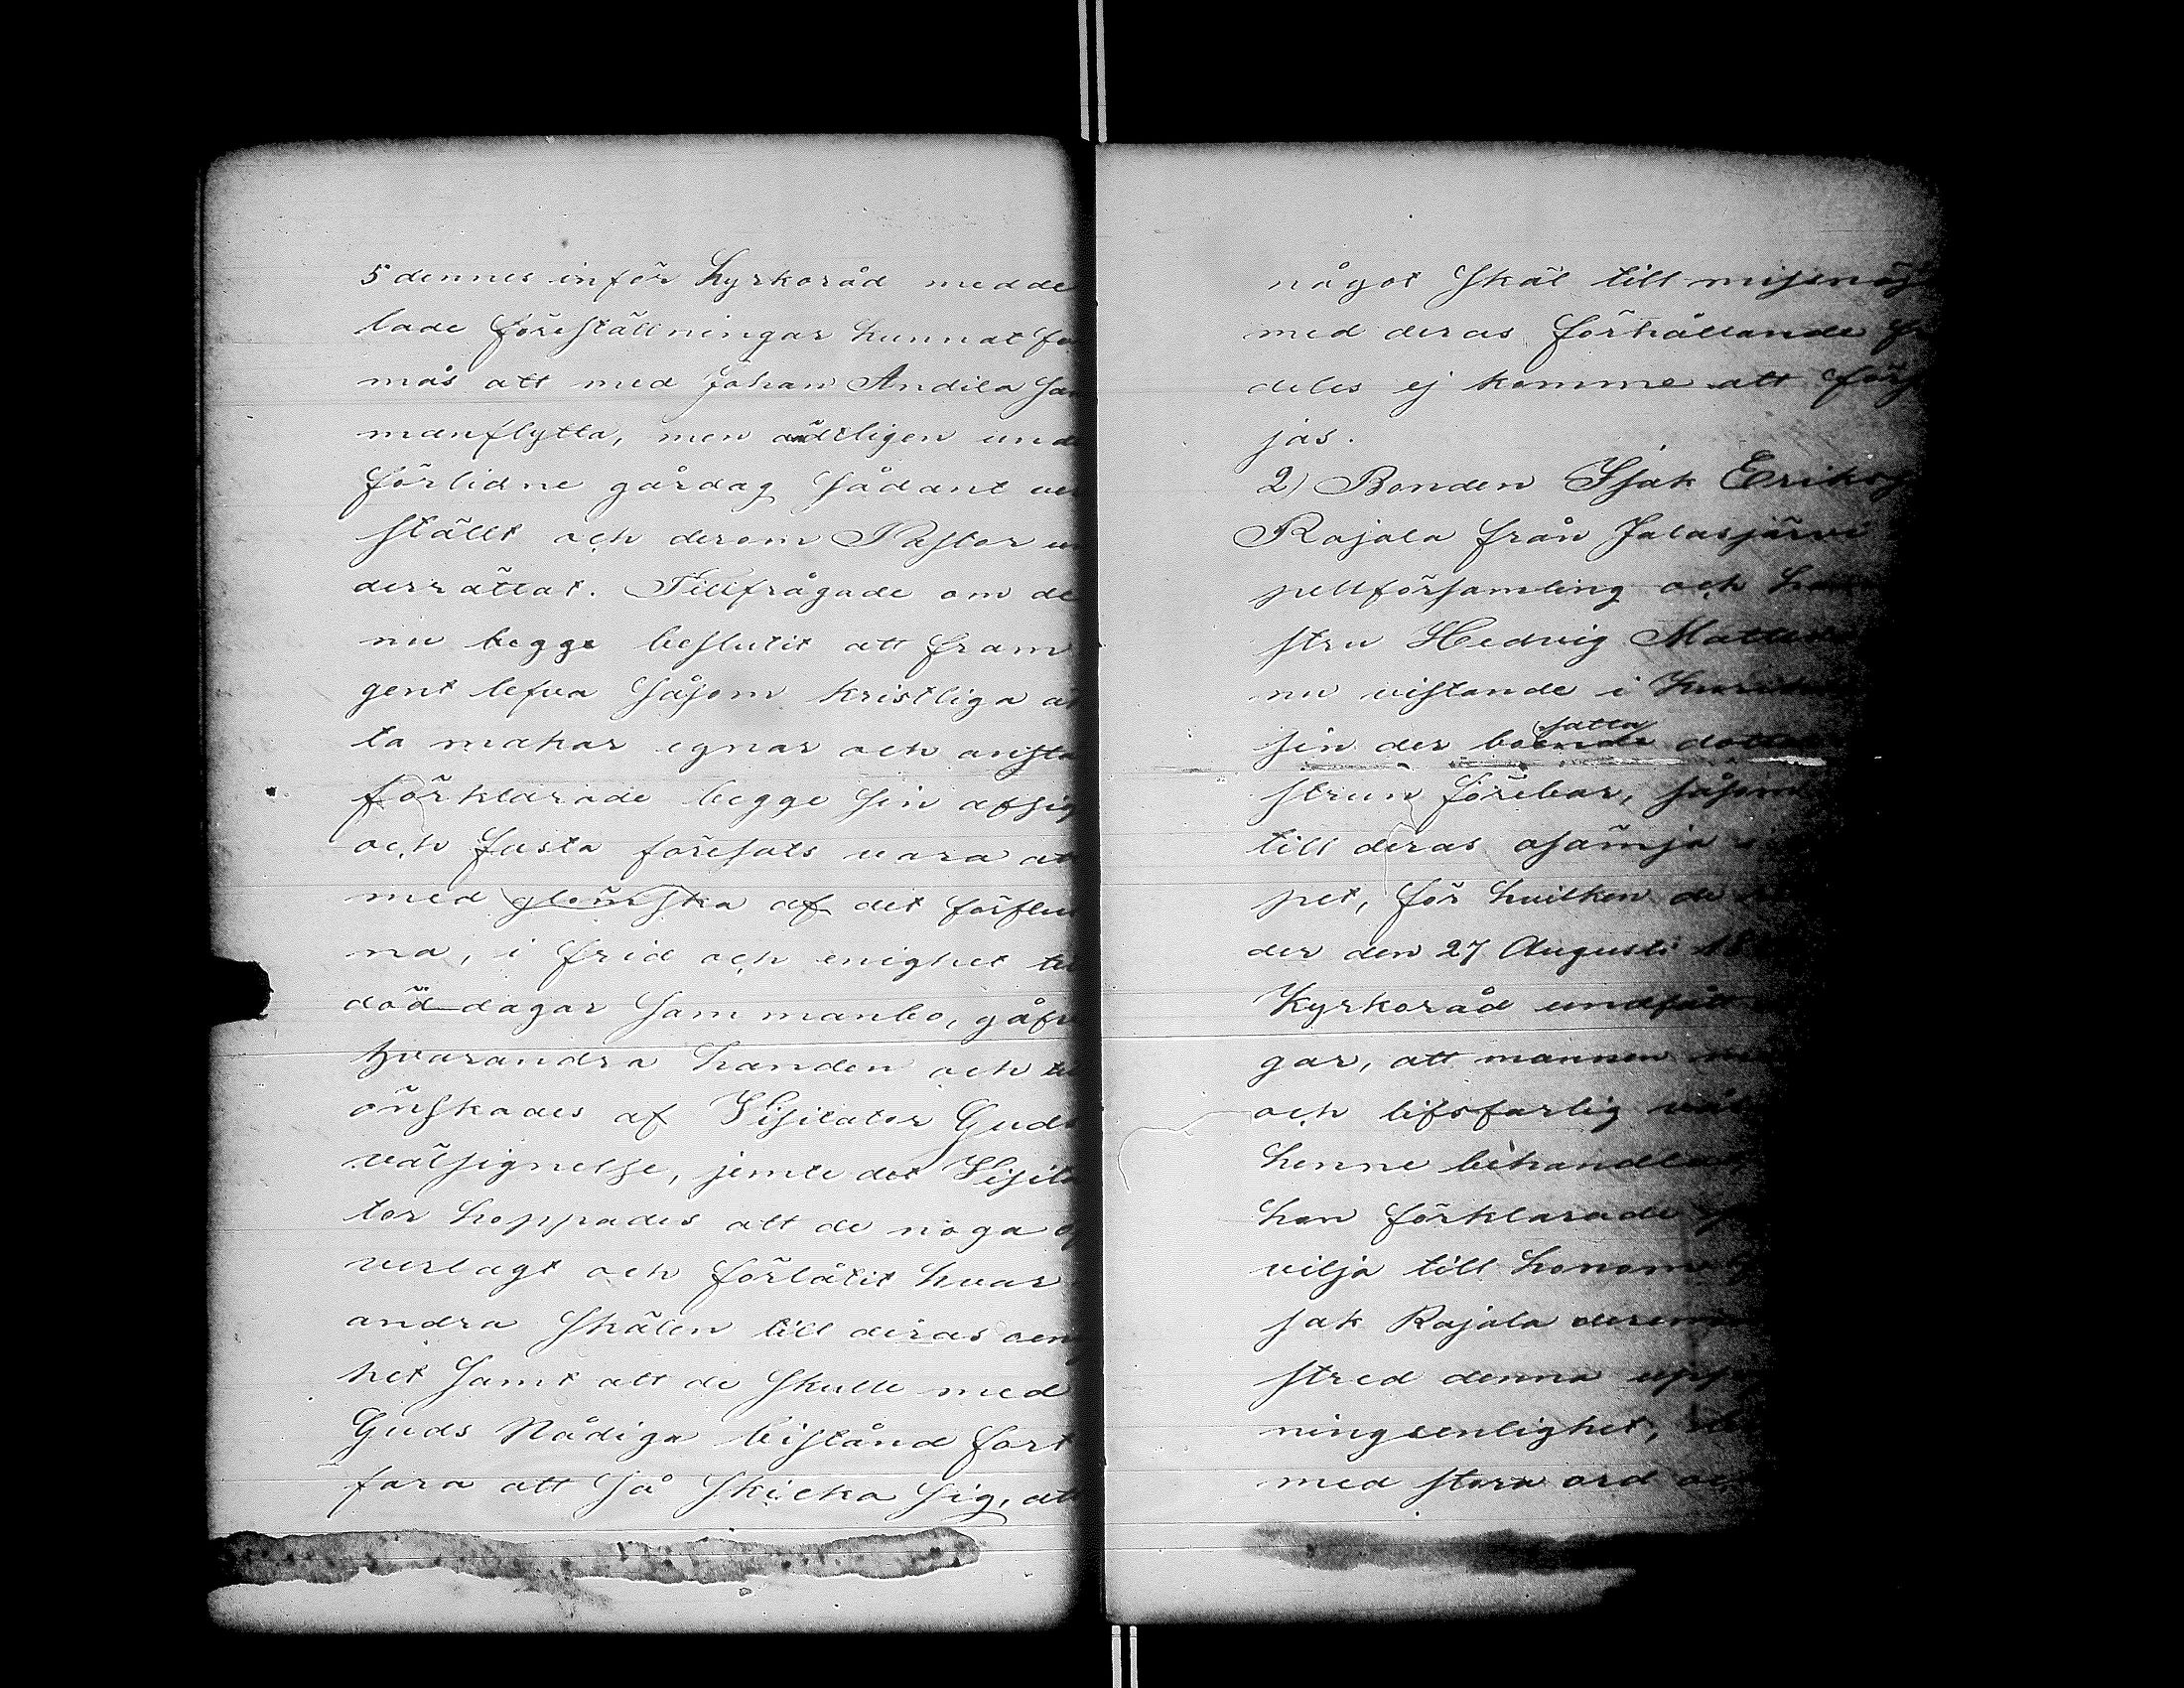 5 dennes inför Kyrkoråd medde
lade föreställningar kunnat för
mås att med Johan Andila sam
manflytta, men ändtligen und
förlidne gårdag sådant verk
ställt och derom Pastor un
derrättat. Tillfrågade om de
nu begge beslutit att fram
gent lefva såsom kristliga äk
ta makar egnar och anstå
förklarade begge sin afsig
och fasta föresats vara at
med glömska af det förflut
na, i frid och enighet till
död dagar samman bo, gåfvo
hvarandra handen och till
önskades af Visitator Guds
välsignelse, jemte det Visita
tor hoppades att de noga öf
verlagt och förlåtit hvar
andra skälen till deras oenig
het samt att de skulle med
Guds Nådiga bistånd fort
fara att så skicka sig, att
något skäl till missnöje
med deras förhållande fram
deles ej komme att förspör
jas.
2) Bonden Isak Eriksson
Rajala från Jalasjärvi
pellförsamling och hans
stru Hedvig Matts
nu vistande i
sin der boende satta dotter
strun förebar, såsom
till deras osämja
pet, för hvilken de
der den 27 Augusti 18
Kyrkoråd undfått
gar, att mannen
och lifsfarlig
henne behandlat,
hon förklarade
vilja till honom
sak Rajala deremot
stred denna upp
ningsenlighet,
med stora ord och